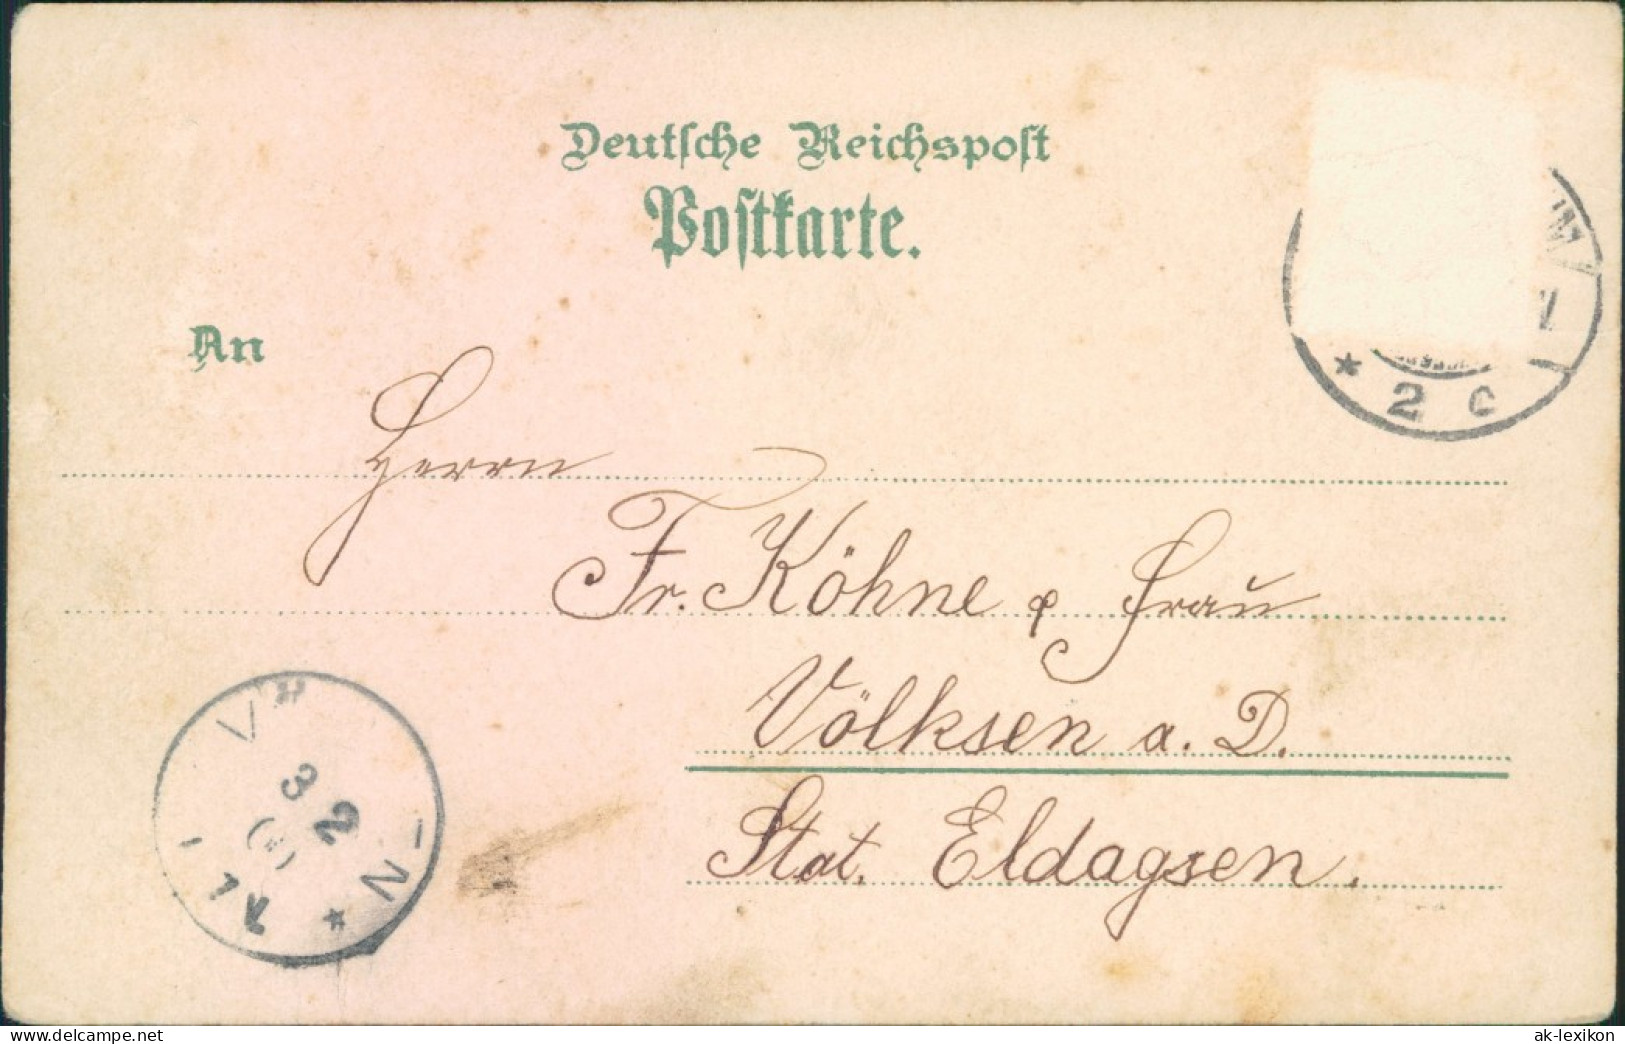 Deutsche Reichspost
Postkarte.
An
Herrn
Fr. Köhne & Frau
Völksen a. D.
Stat. Eldagsen.
* 2 C
3 2
delcampe.net
ak-lexikon